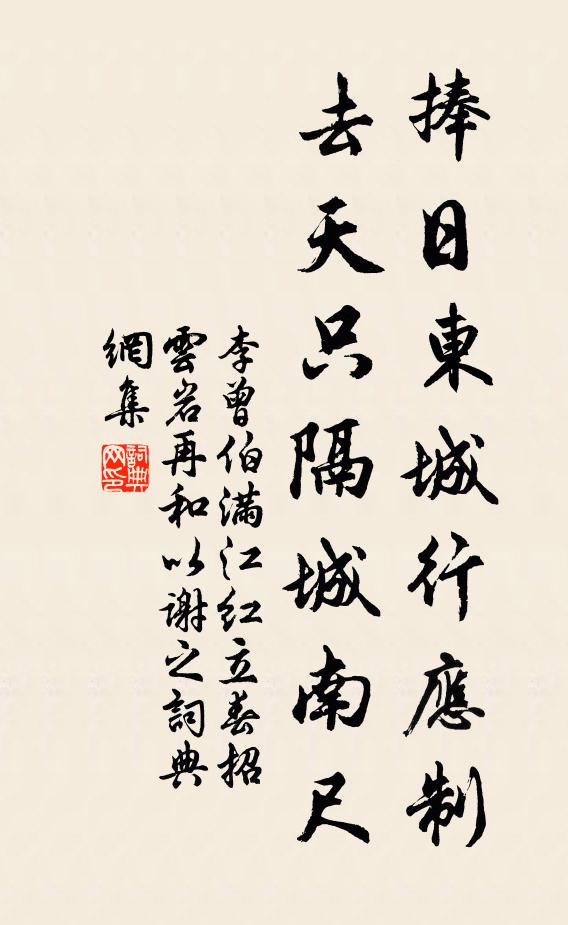 捧日東城行應制
去天只隔城南尺
李曾伯滿江红立春招
雲岩再和以謝之詞典
網集
詞典
网印